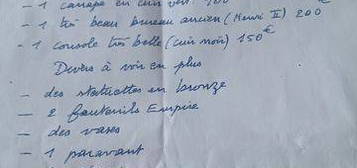 - 1 canapé en cuir vert. 100
- 1 très beau bureau ancien (Henri II) 200 €
- 1 console très belle (cuir noir) 150 €
Divers à voir en plus
- des statuettes en bronze
- 2 fauteuils Empire
- des vases
- 1 paravant